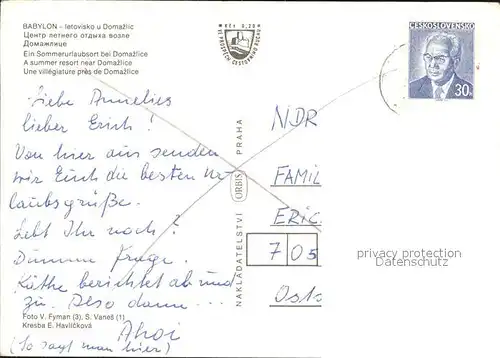 BABYLON – letovisko u Domažlic
Центр летнего отдыха возле
Домажлице
Ein Sommerurlaubsort bei Domažlice
A summer resort near Domažlice
Une villégiature près de Domažlice
Kčs 0,20
VE PROSPĚCH CESTOVNÍHO RUCHU
ČESKOSLOVENSKO
30h
Liebe Annelies
lieber Erich!
Von hier aus senden
wir Euch die besten Ur-
laubsgrüße.
Lebt Ihr noch?
Dumme Frage.
Käthe berichtet ab und
zu. Also dann ...
Ahoi
(So sagt man hier)
NAKLADATELSTVÍ ORBIS PRAHA
NDR
FAMIL
ERIC
705
Osts
privacy protection
Datenschutz
Foto V. Fyman (3), S. Vaneš (1)
Kresba E. Havlíčková